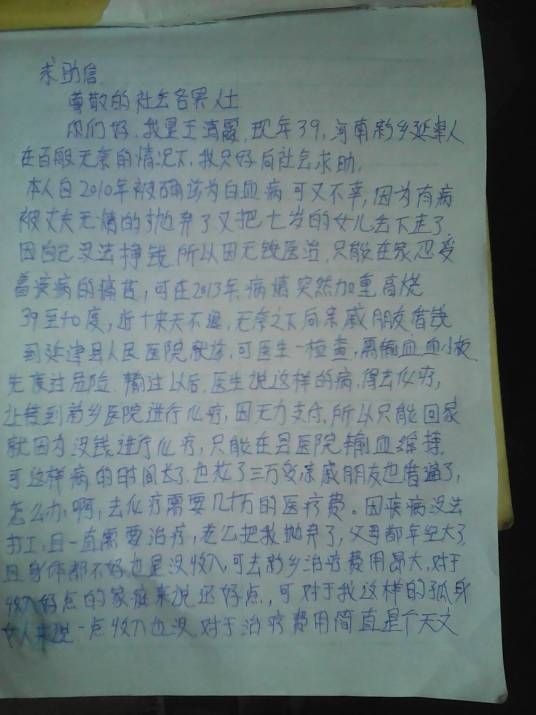 求助信
尊敬的社会各界人士
你们好,我是王清霞,现年39,河南新乡延津人
在百般无奈的情况下,我只好向社会求助.
本人自2010年被确诊为白血病可又不幸,因为有病
被丈夫无情的抛弃了又把七岁的女儿丢下走了
因自己没法挣钱,所以因无钱医治,只能在家忍受
着疾病的痛苦,可在2013年病情突然加重高烧
39至40度,近十来天不退,无奈之下向亲戚朋友借钱
到延津县人民医院就诊,可医生一检查,需输血血小板
先度过危险.输过以后,医生说这样的病,得去化疗,
让转到新乡医院进行化疗,因无力支付,所以只能回家
就因为没钱进行化疗,只能在县医院输血维持.
可这样病的时间长了.也花了三万多亲戚朋友也借遍了,
怎么办,啊,去化疗需要几十万的医疗费。因疾病没法
打工,且一直需要治疗,老公把我抛弃了,父母都年纪大了
且身体都不好也是没收入,可去新乡治疗费用昂大,对于
收入好点的家庭来说还好点,可对于我这样的孤身
女人来说一点收入也没,对于治疗费用简直是个天文